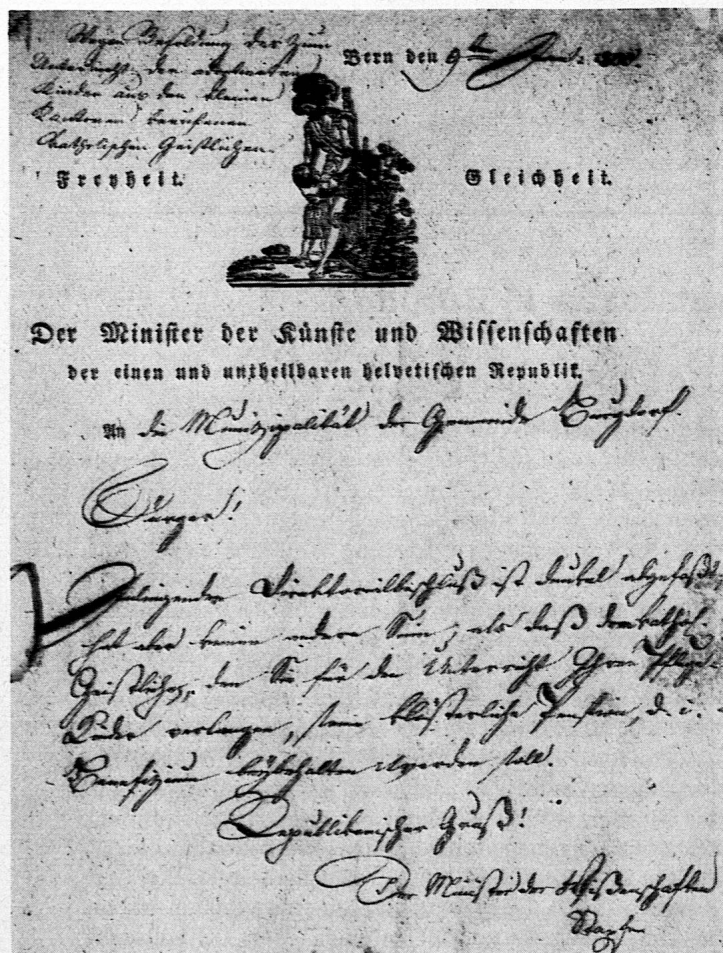 Wegen Besoldung der zum
Unterricht der
Kinder aus den kleinen
Kantonen berufenen
Catholischen Geistlichen.
Bern den 9
Freyheit.
Gleichheit.
Der Minister der Künste und Wissenschaften
der einen und untheilbaren helvetischen Republik.
An die Munizipalität der Gemeinde Burgdorf.
Burger!
Beiliegender Direktorialbeschluß ist dunkel abgefaßt,
hat aber keinen andern Sinn, als daß dem kathol.
Geistlichen, den Sie für den Unterricht Ihrer Pflege-
Kinder verlangen, seine klösterliche Pension, d. i.
Benefizium beybehalten werden soll.
Republikanischer Gruß!
Der Minister der Wißenschaften
Stapfer